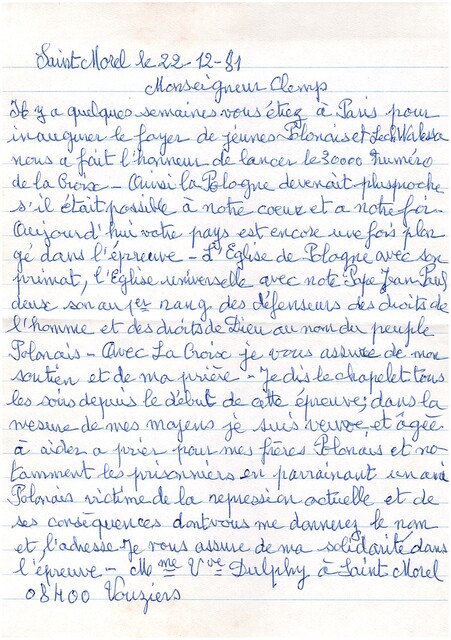 Saint Morel le 22-12-81
Monseigneur Clemp
Il y a quelques semaines vous étiez à Paris pour
inaugurer le foyer de jeunes Polonais et Lech Walesa
nous a fait l'honneur de lancer le 30000 numéro
de la Croix - Ainsi la Pologne devenait plus proche
s'il était possible à notre coeur et a notre foi.
Aujourd'hui votre pays est encore une fois plon
gé dans l'épreuve - L'Eglise de Pologne avec son
primat, l'Eglise universelle avec note Pape Jean Paul
deux son au 1er rang des défenseurs des droits de
l'homme et des droits de Dieu au nom du peuple
Polonais - Avec La Croix je vous assure de mon
soutien et de ma prière - Je dis le chapelet tous
les soirs depuis le début de cette épreuve, dans la
mesure de mes moyens je suis veuve, et âgée
à aider a prier pour mes frères Polonais et no
tamment les prisonniers en parrainant un ami
Polonais victime de la repression actuelle et de
ses conséquences dont vous me donnerez le nom
et l'adresse Je vous assure de ma solidarité dans
l'épreuve - Mme Vve Dulphy à Saint Morel
08400 Vouziers